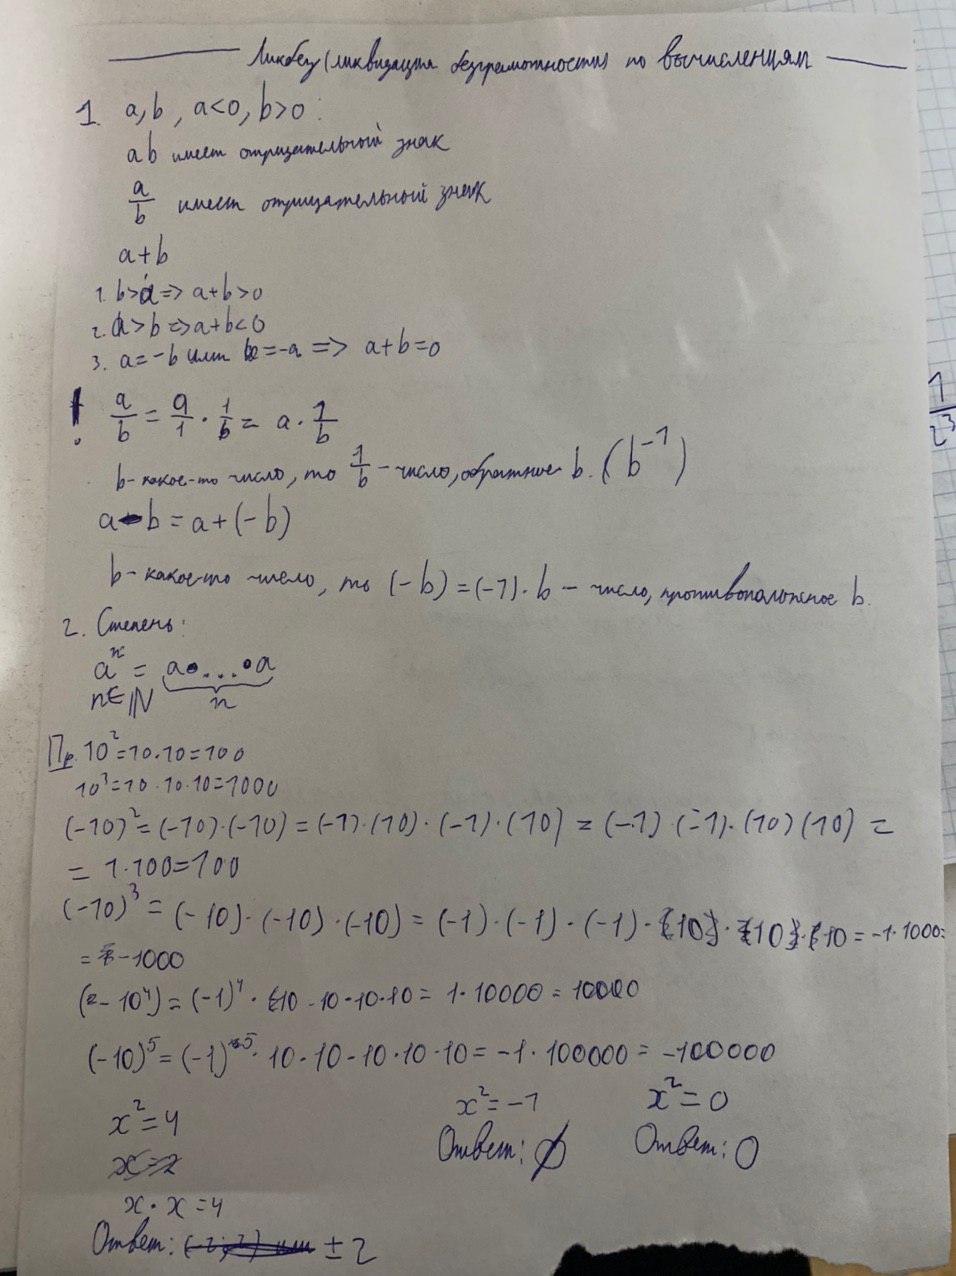 Ликбез (ликвидация безграмотности) по вычислениям
1. a, b, a<0, b>0:
ab имеет отрицательный знак
a/b имеет отрицательный знак
a+b
1. b>a => a+b>0
2. a>b => a+b<0
3. a=-b или b=-a => a+b=0
! a/b = a/1 · 1/b = a · 1/b
b - какое-то число, то 1/b - число, обратное b. (b⁻¹)
a-b = a+(-b)
b - какое-то число, то (-b) = (-1)·b - число, противоположное b.
2. Степень:
aⁿ = a·...·a
n∈ℕ n
Пр. 10² = 10·10 = 100
10³ = 10·10·10 = 1000
(-10)² = (-10)·(-10) = (-1)·(10)·(-1)·(10) = (-1)·(-1)·(10)(10) =
= 1·100 = 100
(-10)³ = (-10)·(-10)·(-10) = (-1)·(-1)·(-1)·10·10·10 = -1·1000=
= -1000
(-10⁴) = (-1)⁴·10·10·10·10 = 1·10000 = 10000
(-10)⁵ = (-1)⁵·10·10·10·10·10 = -1·100000 = -100000
x²=4 x²=-1 x²=0
x=2 Ответ: ∅ Ответ: 0
x·x=4
Ответ: ±2
1/2³